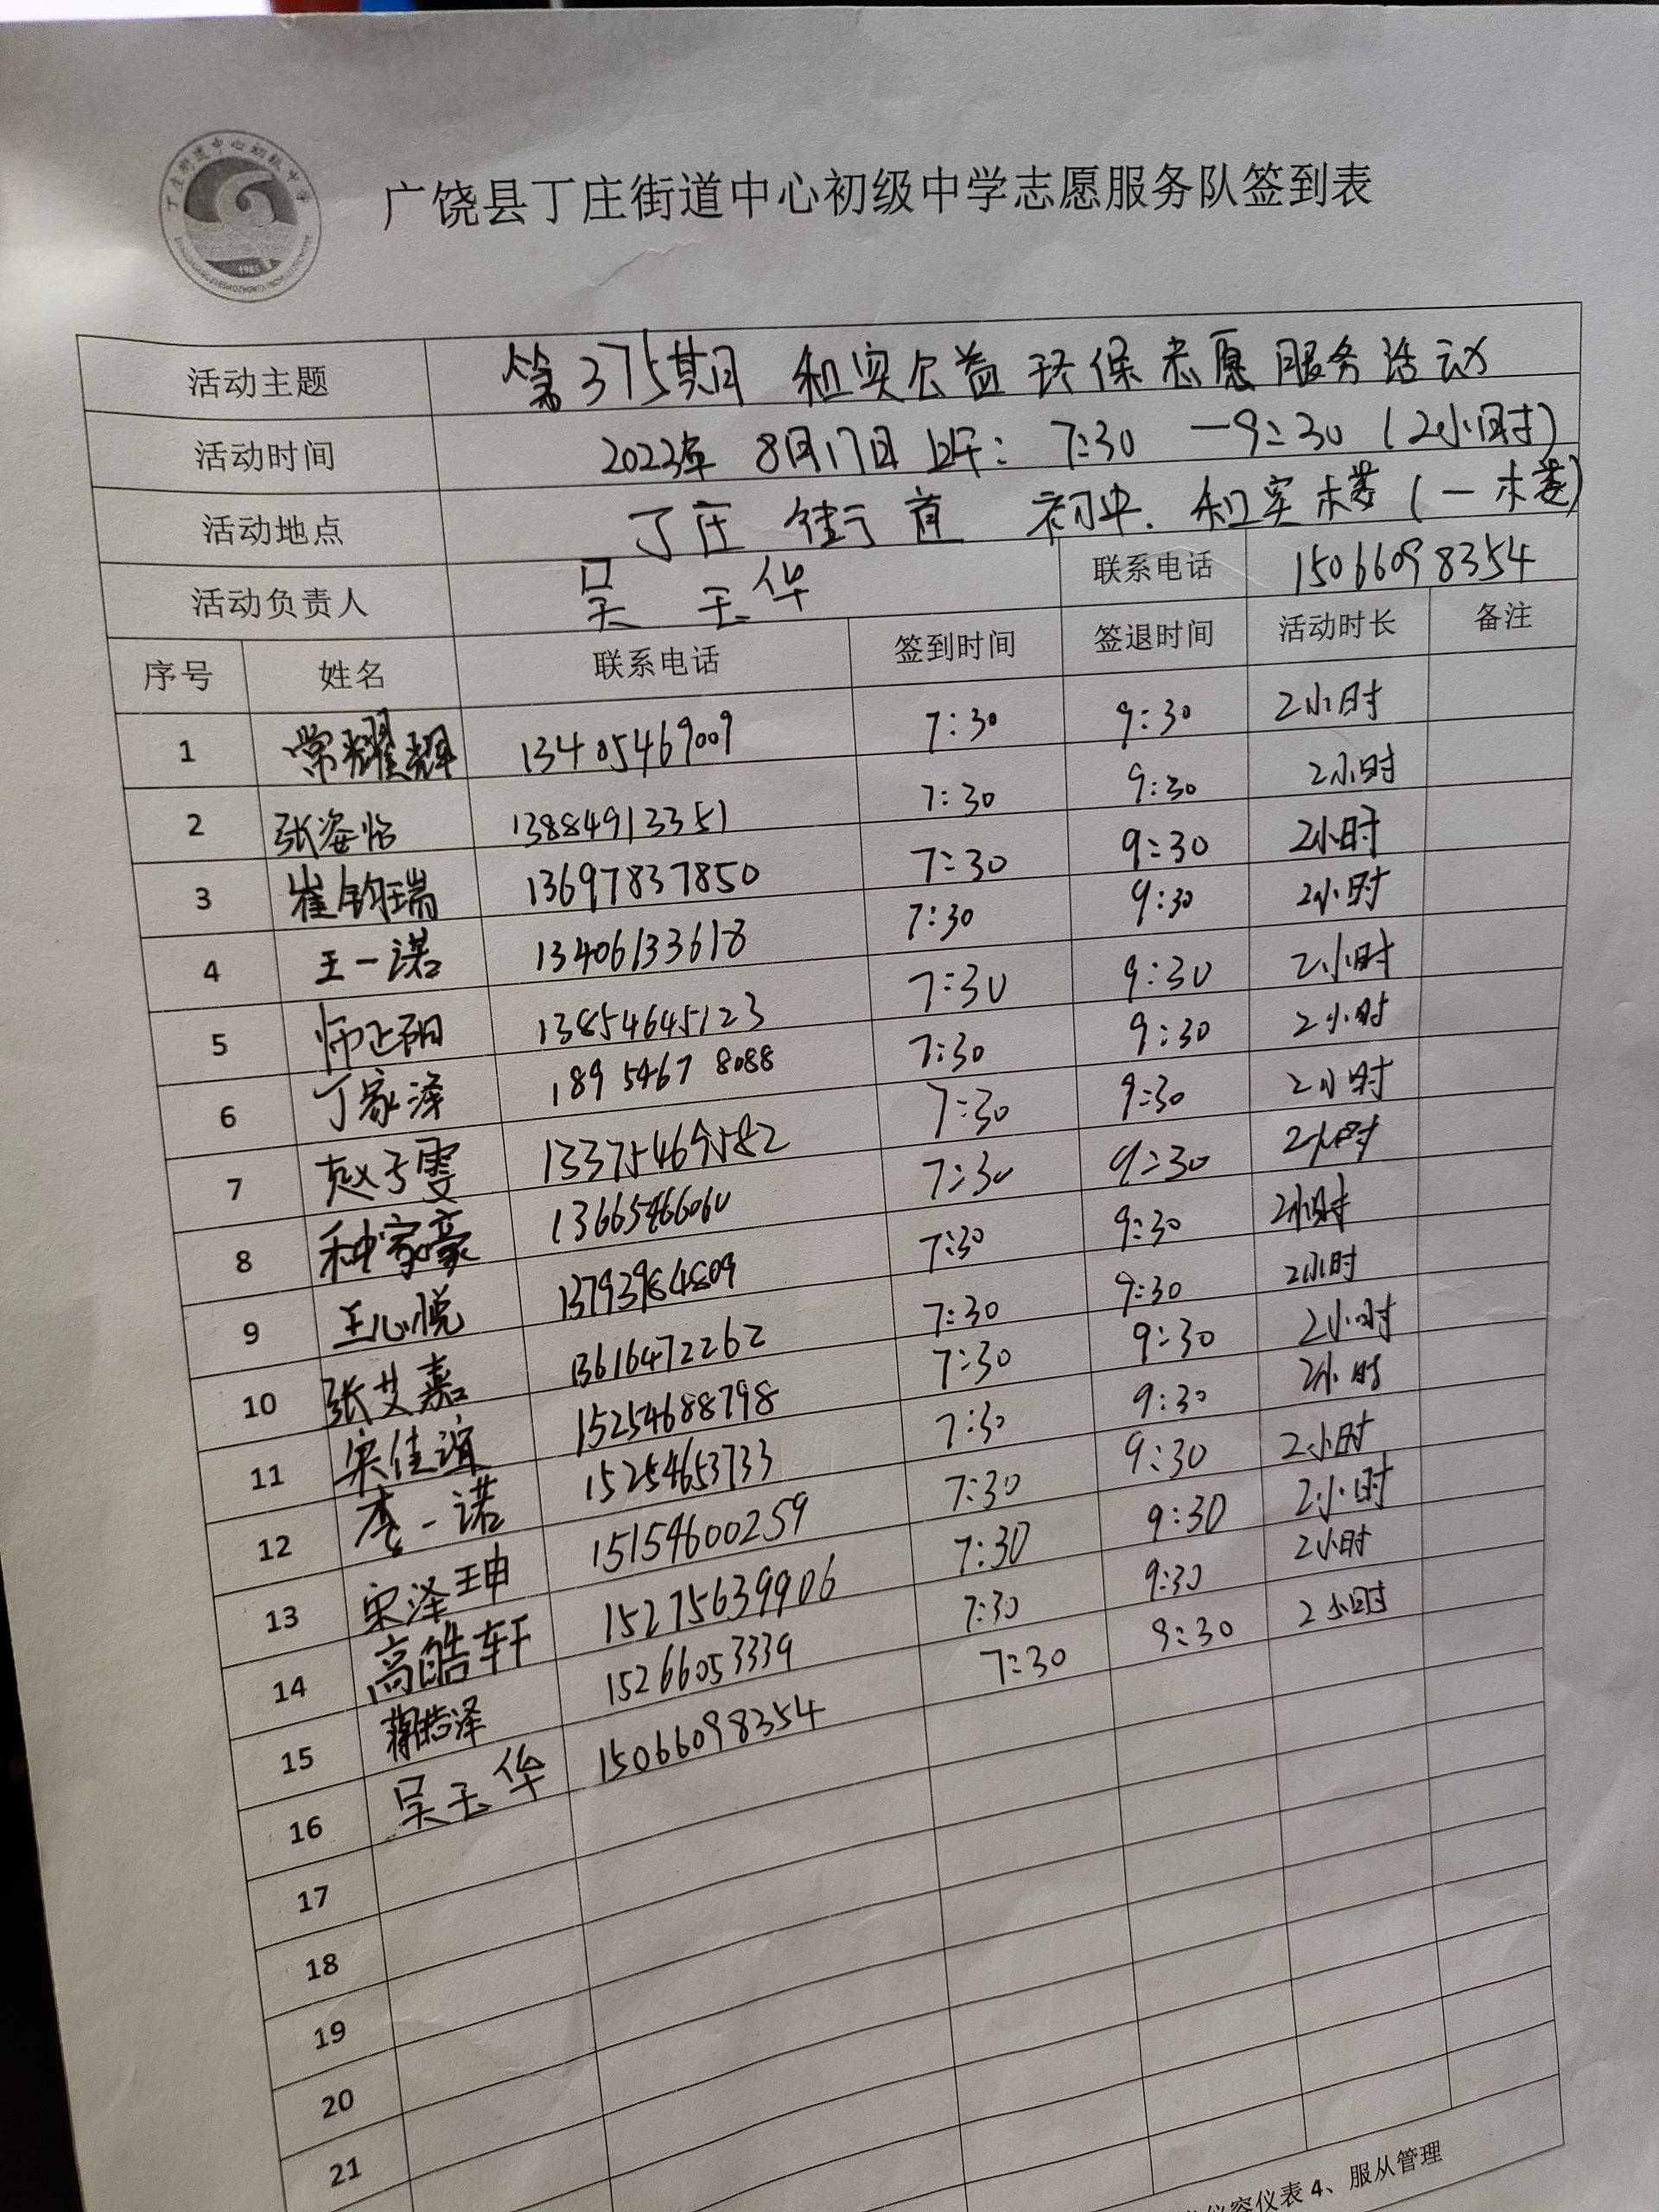 丁庄街道中心初级中学
1985
广饶县丁庄街道中心初级中学志愿服务队签到表
活动主题 第375期 和实公益环保志愿服务活动
活动时间 2023年 8月17日 上午: 7:30 —9:30 (2小时)
活动地点 丁庄街道 初中. 和实楼(一楼)
活动负责人 吴玉华 联系电话 15066098354
序号 姓名 联系电话 签到时间 签退时间 活动时长 备注
1 常耀辉 13405469009 7:30 9:30 2小时
2 张姿怡 13884913351 7:30 9:30 2小时
3 崔钧瑞 13697837850 7:30 9:30 2小时
4 王一诺 13406133618 7:30 9:30 2小时
5 师正阳 13854645123 7:30 9:30 2小时
6 丁家泽 189 5467 8088 7:30 9:30 2小时
7 赵子雯 13375469582 7:30 9:30 2小时
8 种家豪 13665466060 7:30 9:30 2小时
9 王心悦 13793984809 7:30 9:30 2小时
10 张艾嘉 13616472262 7:30 9:30 2小时
11 宋佳谊 15254688798 7:30 9:30 2小时
12 李一诺 15254653733 7:30 9:30 2小时
13 宋泽珅 15154600259 7:30 9:30 2小时
14 高皓轩 15275639906 7:30 9:30 2小时
15 蒋皓泽 15266053339 7:30 9:30 2小时
16 吴玉华 15066098354 7:30 9:30 2小时
17
18
19
20
21
仪容仪表 4、服从管理